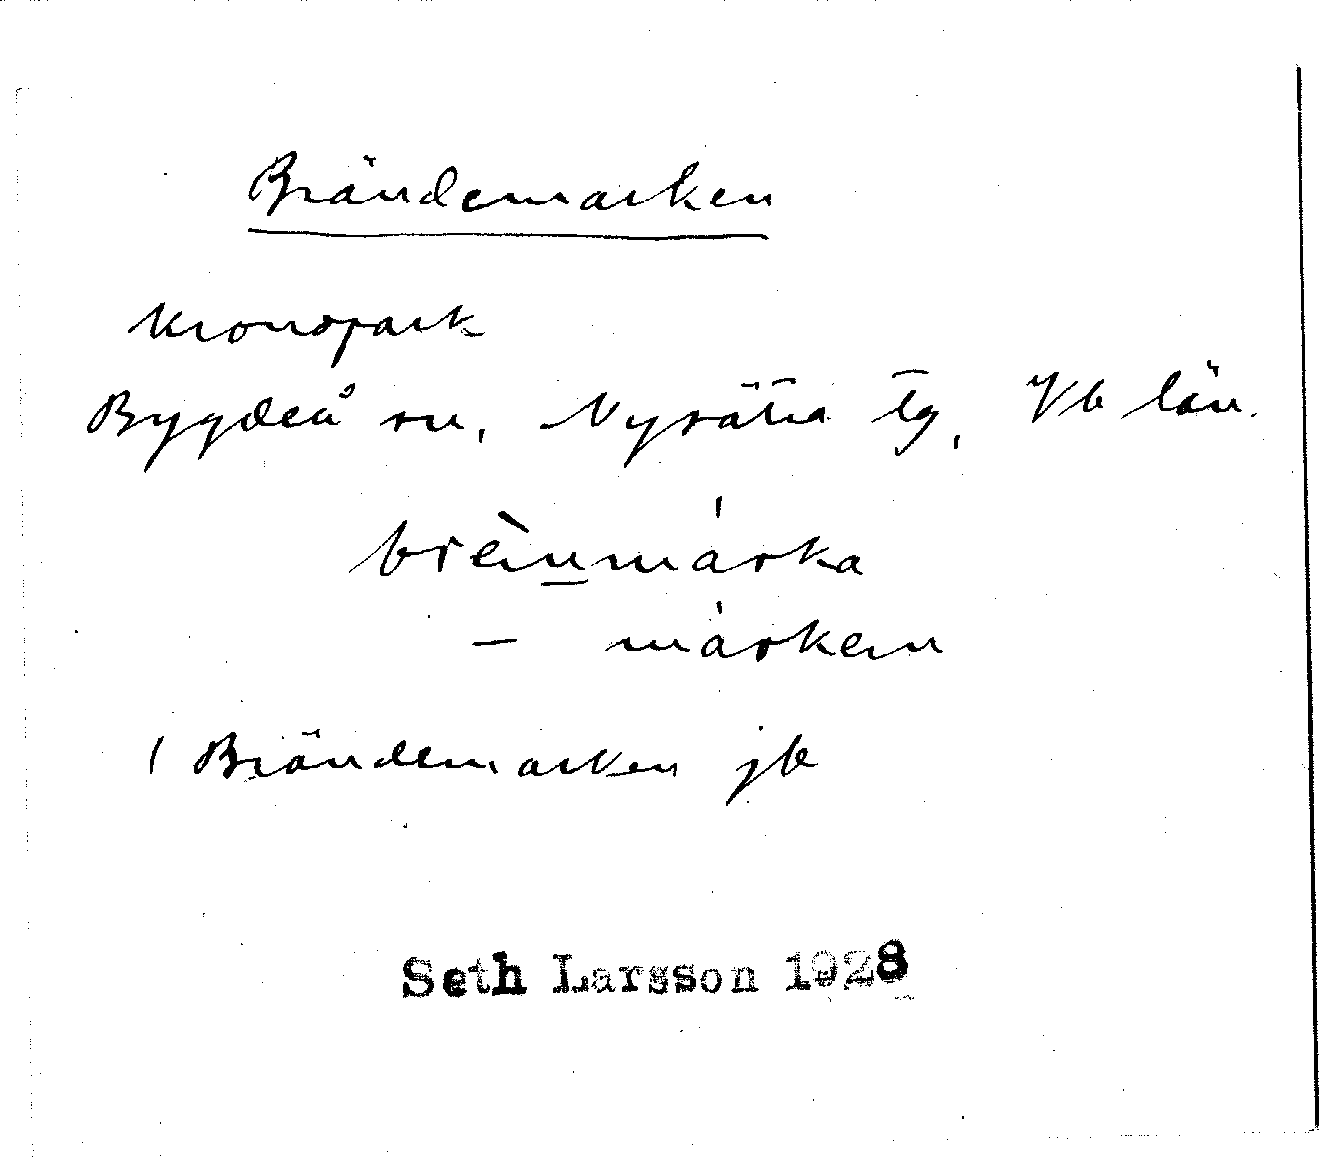 Brändemarken
Kronopark
Bygdeå sn, Nysätra tg, Vb län.
brènnmárka
— márken
1 Brändemarken jb
Seth Larsson 1928